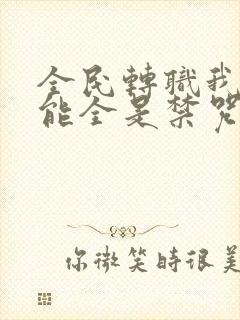 全民轉職我
能全是禁咒
你微笑時很美